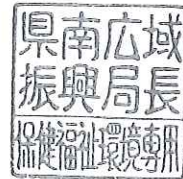 県南広域
振興局長
保健福祉環境専用